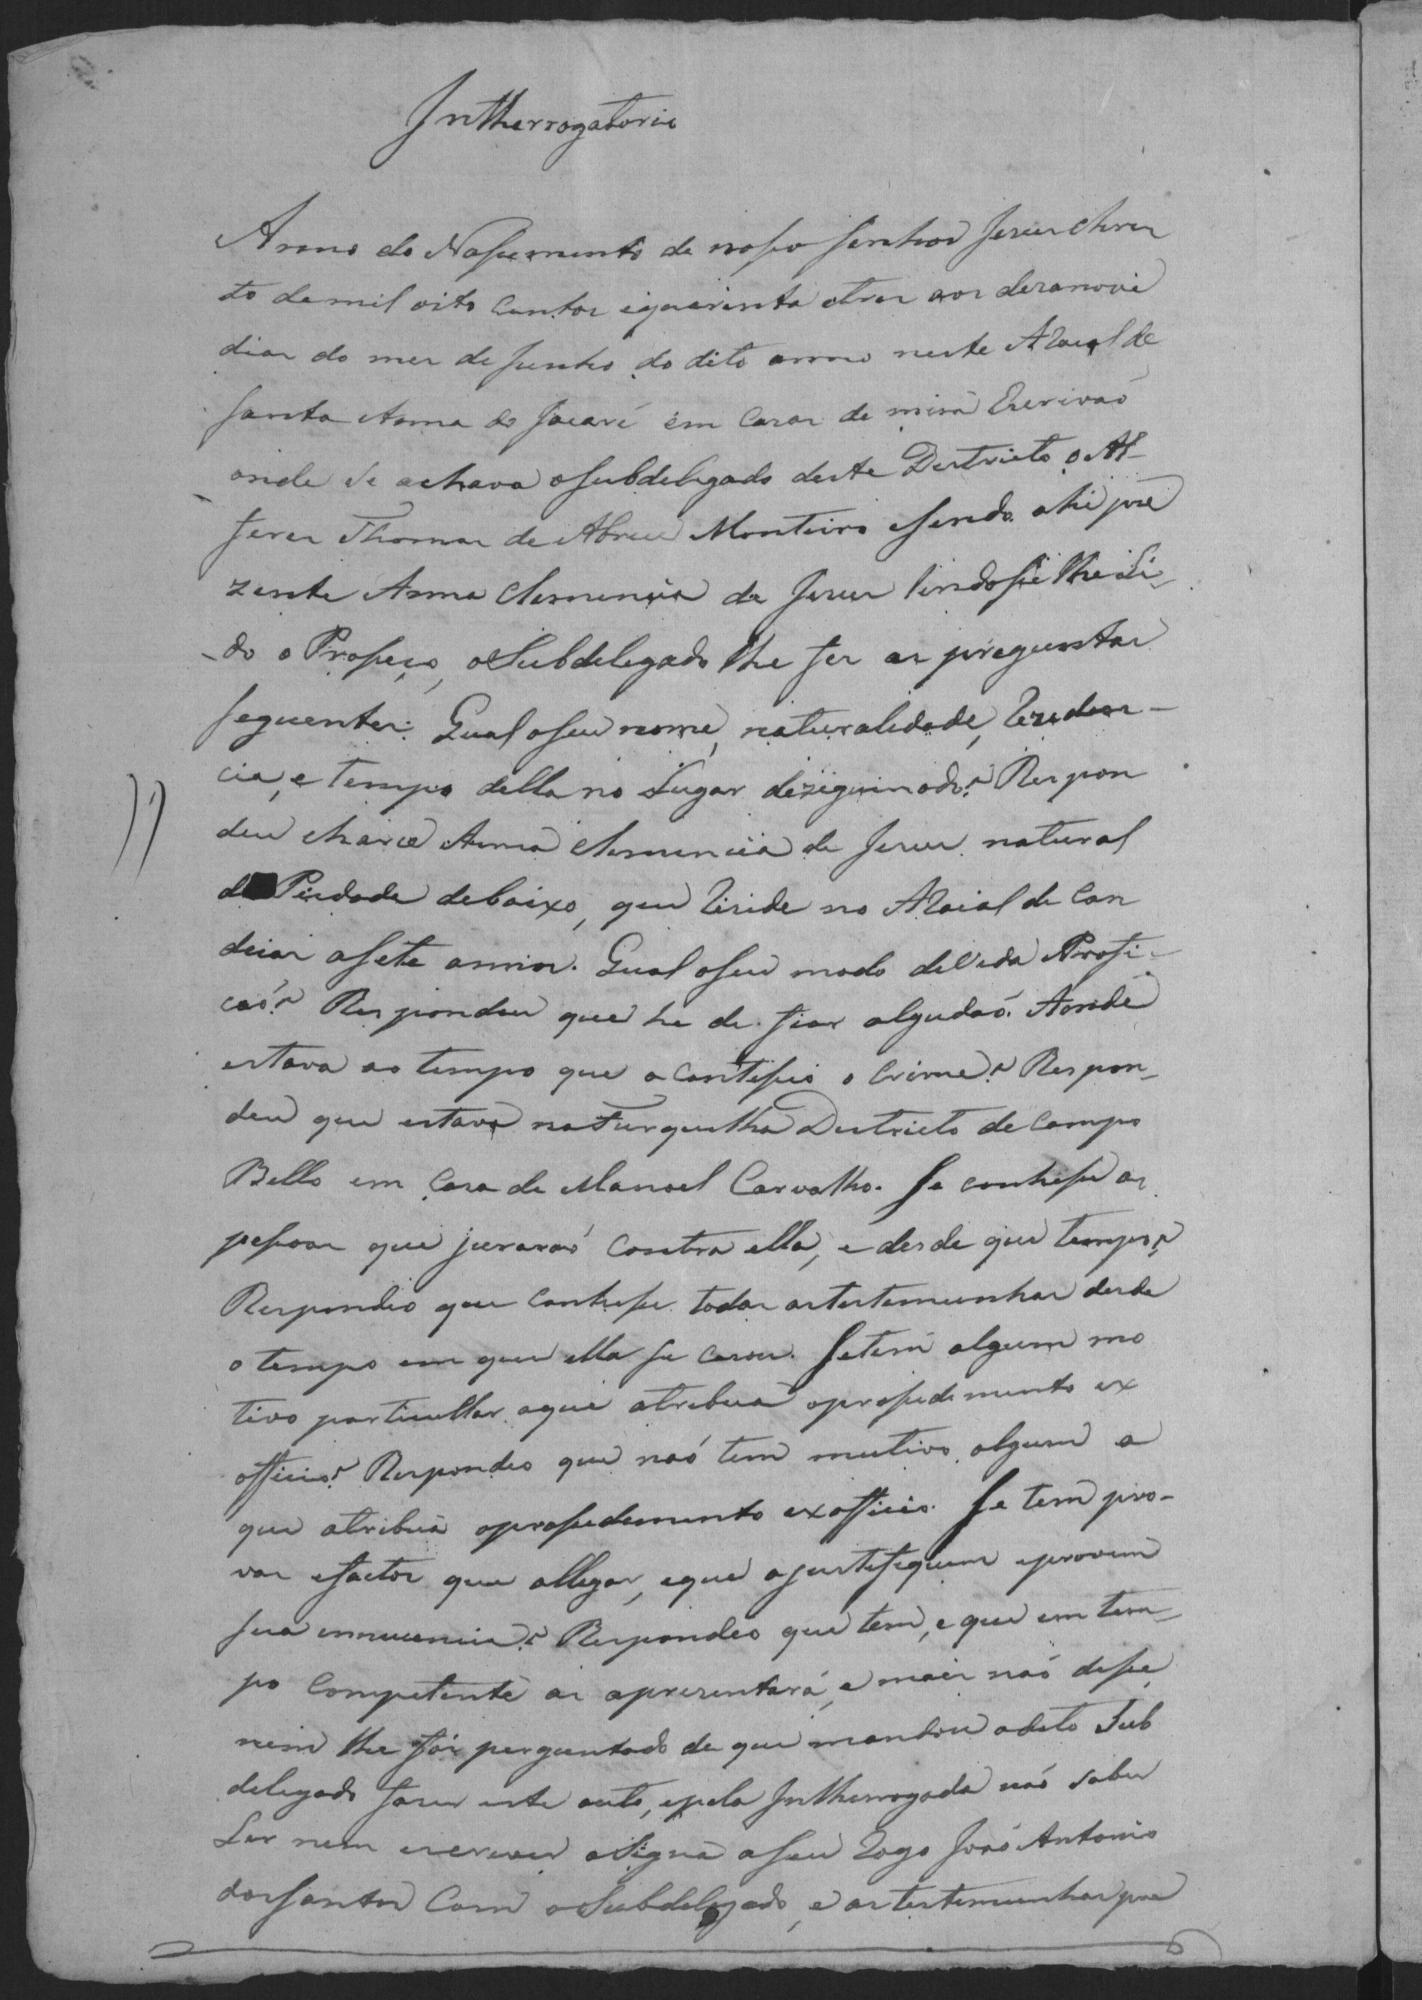 Intherrogatorio
Anno do Nascimento de nosso Senhor Jesus Chris
to de mil oito centos e quarenta e tres aos dezanove
dias do mes de Junho do dito anno neste Araial de
Santa Anna do Jacaré em Casas de mim Escrivaõ
onde se achava o Subdelegado deste Destricto o Al-
feres Thomas de Abreu Monteiro e sendo ahi pre
zente Anna Clemencia de Jesus sendo se lhe li-
do o Prosseço, o Subdelegado lhe fes as preguntas
seguentes: Qual o seu nome, naturalidade, reziden-
cia, e tempo della no Lugar dezeguinado? Respon
deu chamarce Anna Clemencia de Jesus natural
da Piedade debaixo, que reside no Araial de Can
deias a sete annos. Qual o seu modo de vida Profi-
caõ? Respondeu que he de fiar algudaõ. Aonde
estava ao tempo que acontesseo o Crime? Respon-
deu que estava na Furquilha Destricto de Campo
Bello em Casa de Manoel Carvalho. Se conhesse as
pessoas que juraraõ contra ella, e desde que tempo?
Respondeo que conhesse todas as testemunhas desde
o tempo em que ella se casou. Se tem algum mo
tivo particullar a que atribua o prossedimento ex
officio? Respondeo que naõ tem mutivo algum a
que atribua o prossedemento ex officio. Se tem pro-
vas e factos que allegar, e que a justefiquem e provem
sua innucencia? Respondeo que tem, e que em tem-
po Competente as aprezentará, e mais naõ disse,
nem lhe foi perguntado de que mandou o dito Sub
delegado faser este auto, e pela Intherrogada naõ saber
Ler nem escrever asigna a seu rogo Joaõ Antonio
dos Santos Com o Subdelegado, e as testemunhas pre